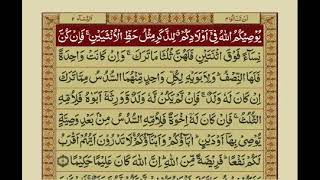 لن تنالوا ٤ النسآء ٤
يُوْصِيْكُمُ اللّٰهُ فِيْٓ اَوْلَادِكُمْ ۗ لِلذَّكَرِ مِثْلُ حَظِّ الْاُنْثَيَيْنِ ۚ فَاِنْ كُنَّ
نِسَآءً فَوْقَ اثْنَتَيْنِ فَلَهُنَّ ثُلُثَا مَا تَرَكَ ۚ وَاِنْ كَانَتْ وَاحِدَةً
فَلَهَا النِّصْفُ ۭ وَلِاَبَوَيْهِ لِكُلِّ وَاحِدٍ مِّنْهُمَا السُّدُسُ مِمَّا تَرَكَ
اِنْ كَانَ لَهٗ وَلَدٌ ۚ فَاِنْ لَّمْ يَكُنْ لَّهٗ وَلَدٌ وَّوَرِثَهٗٓ اَبَوٰهُ فَلِاُمِّهِ
الثُّلُثُ ۚ فَاِنْ كَانَ لَهٗٓ اِخْوَةٌ فَلِاُمِّهِ السُّدُسُ مِنْۢ بَعْدِ وَصِيَّةٍ
يُّوْصِيْ بِهَآ اَوْ دَيْنٍ ۭ اٰبَآؤُكُمْ وَاَبْنَآؤُكُمْ لَا تَدْرُوْنَ اَيُّهُمْ اَقْرَبُ
لَكُمْ نَفْعًا ۭ فَرِيْضَةً مِّنَ اللّٰهِ ۭ اِنَّ اللّٰهَ كَانَ عَلِيْمًا حَكِيْمًا ۝١١